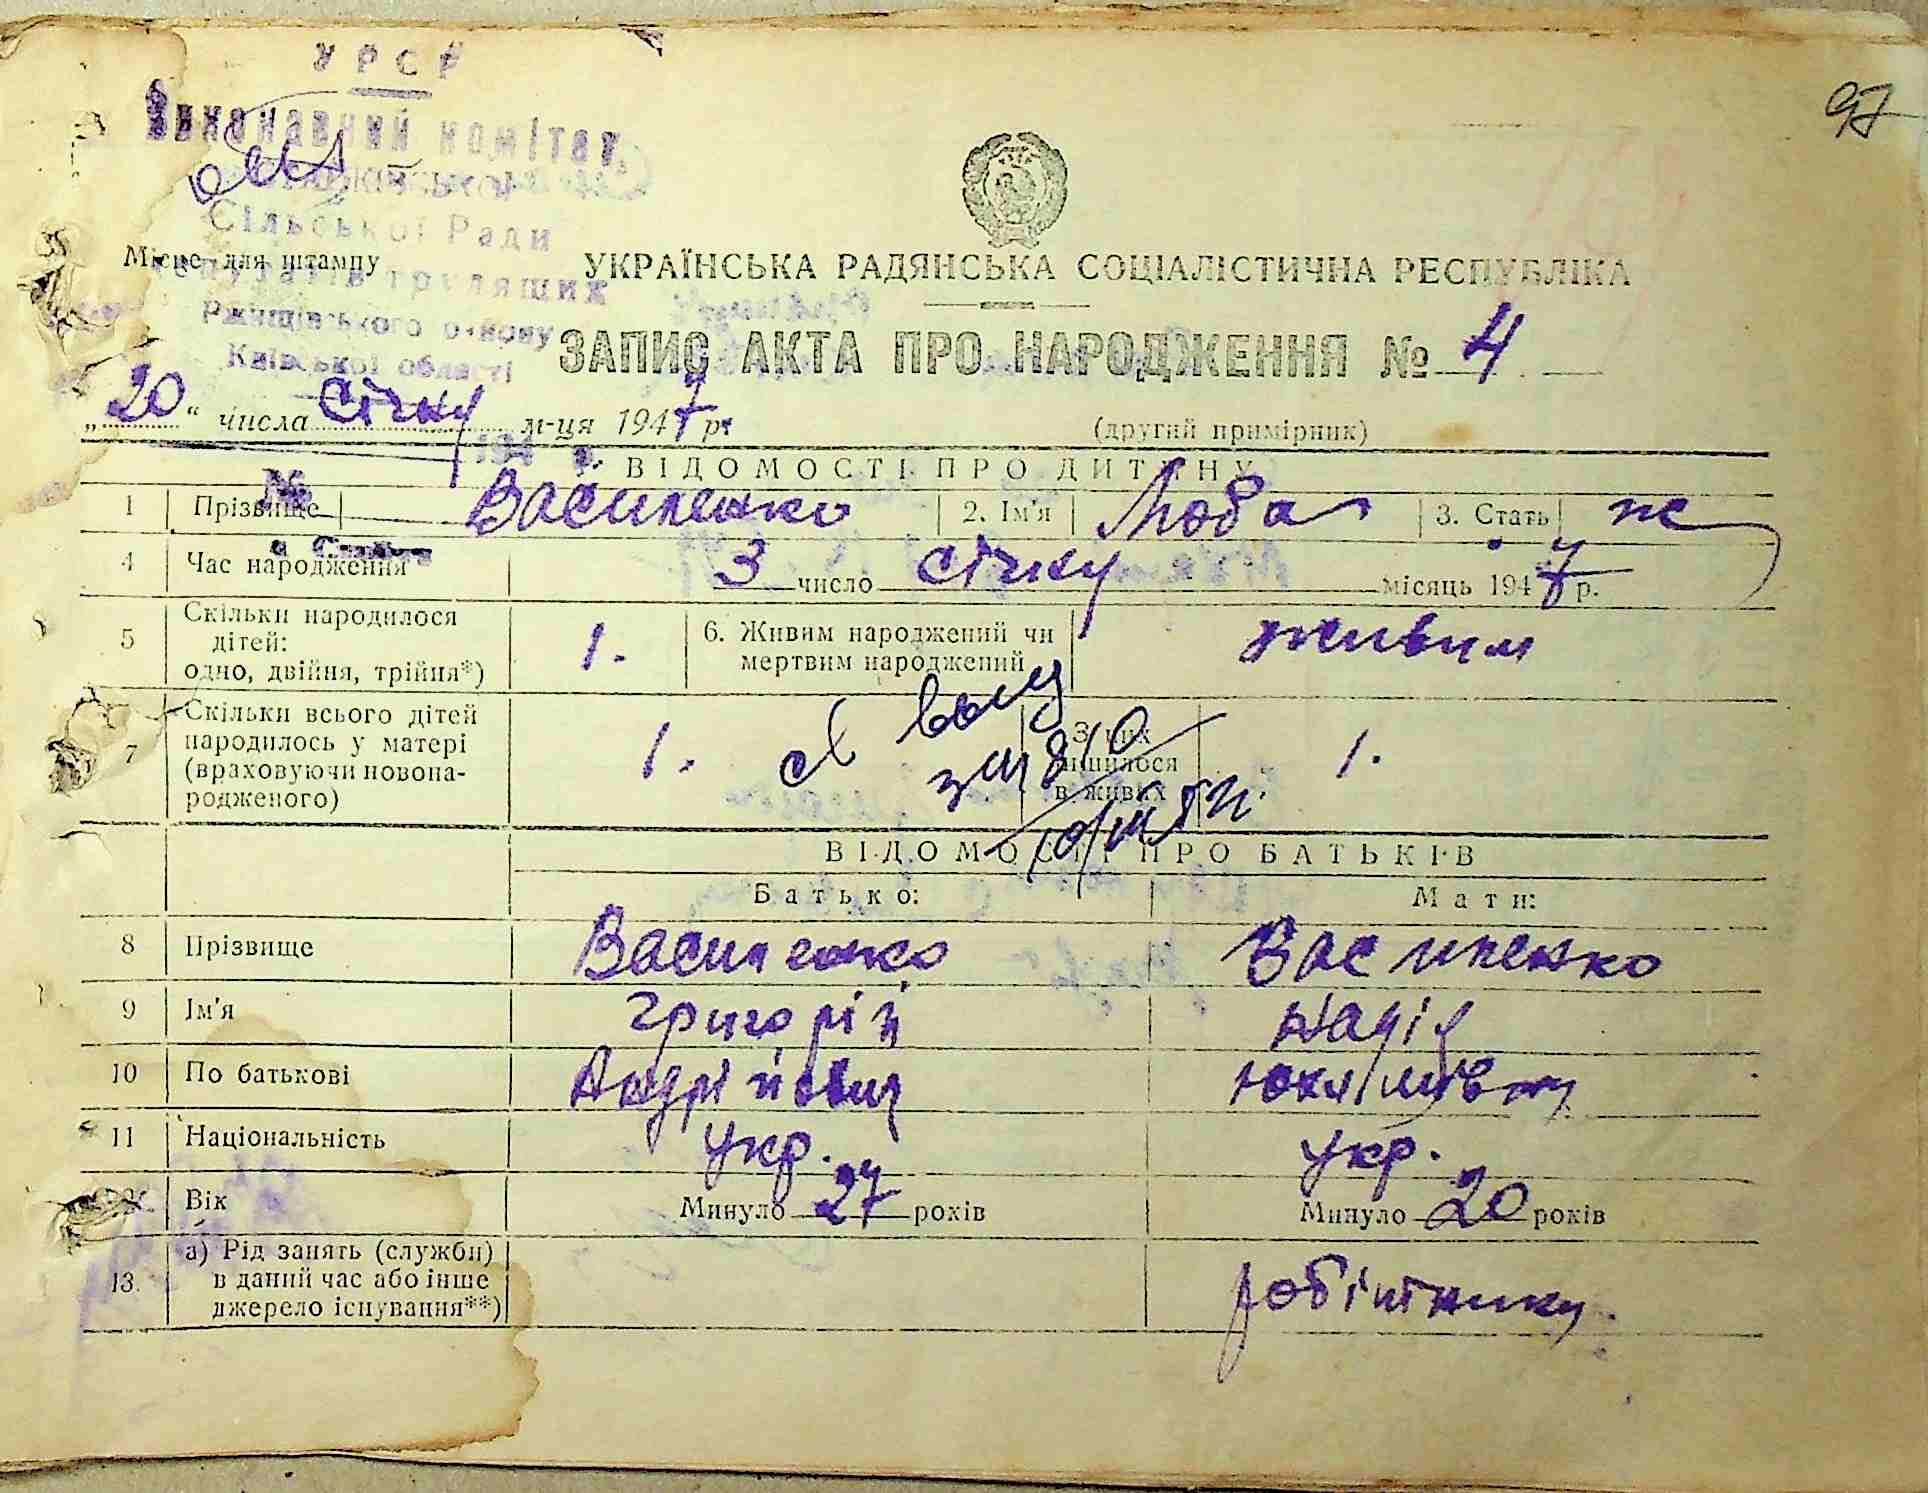 УРСР
97
Виконавчий комітет
Сільської Ради
Місце для штампу
депутатів трудящих
УКРАЇНСЬКА РАДЯНСЬКА СОЦІАЛІСТИЧНА РЕСПУБЛІКА
Ржищівського району
Київської області
ЗАПИС АКТА ПРО НАРОДЖЕННЯ № 4
„20“ числа січня м-ця 1947 р.
(другий примірник)
194 р.
ВІДОМОСТІ ПРО ДИТИНУ
№
1 Прізвище Василенко 2. Ім'я Люба 3. Стать ж
4 Час народження 3 число січня місяць 1947 р.
5 Скільки народилося дітей: одно, двійня, трійня*) 1. 6. Живим народжений чи мертвим народжений живим
7 Скільки всього дітей народилось у матері (враховуючи новонародженого) 1. З них лишилося в живих 1.
ВІДОМОСТІ ПРО БАТЬКІВ
Батько: Мати:
8 Прізвище Василенко Василенко
9 Ім'я Григорій Надія
10 По батькові Андрійович
11 Національність укр. укр.
12 Вік Минуло 27 років Минуло 20 років
13. а) Рід занять (служби) в даний час або інше джерело існування**)